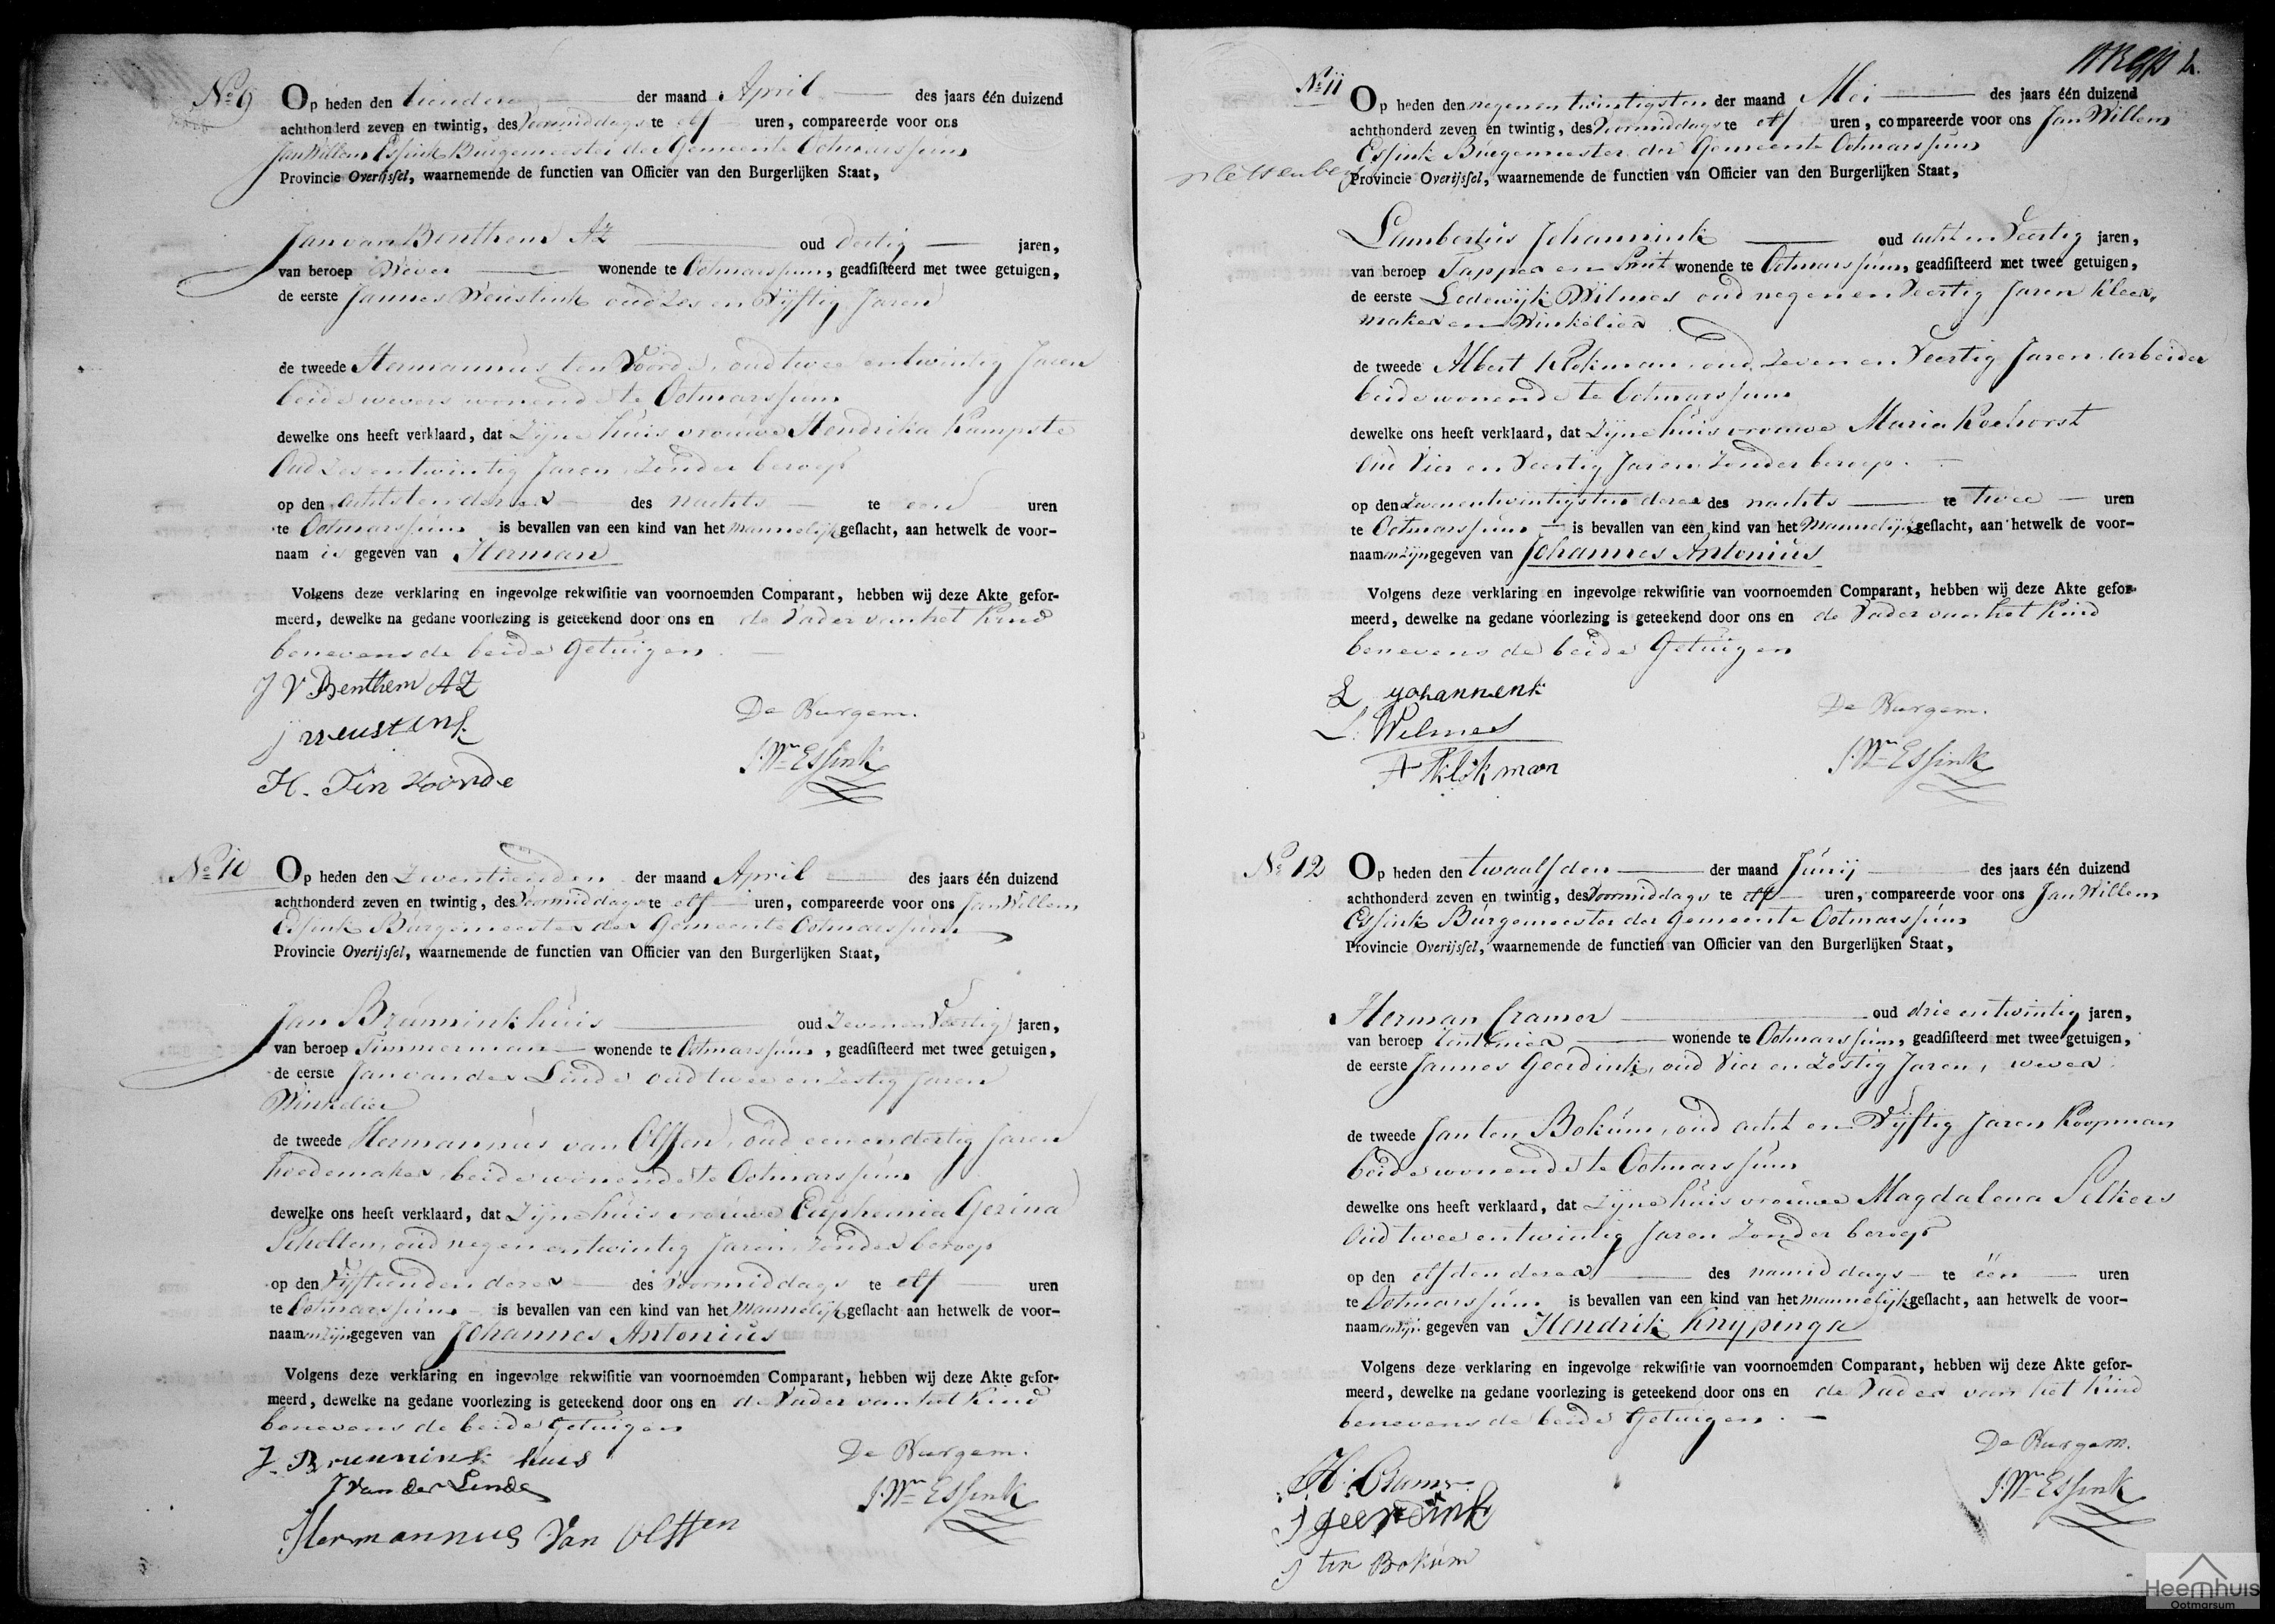 No 9
Op heden den tienden der maand April des jaars één duizend
achthonderd zeven en twintig, des Voormiddags te elf uren, compareerde voor ons
Jan Willem Essink Burgemeester der Gemeente Ootmarssum
Provincie Overijssel, waarnemende de functien van Officier van den Burgerlijken Staat,
Jan van Benthem AZ oud dertig jaren,
van beroep Wever wonende te Ootmarssum, geadsisteerd met twee getuigen,
de eerste Jannes Weustink oud Zes en Vijftig Jaren
de tweede Hermannus ten Voorde, oud twee entwintig Jaren
beide wevers wonende te Ootmarssum
dewelke ons heeft verklaard, dat Zijne huisvrouwe Hendrika Kampste
Oud Zes entwintig Jaren, Zonder beroep
op den achtsten dezer des nachts te een uren
te Ootmarssum is bevallen van een kind van het Mannelijk geslacht, aan hetwelk de voor-
naam is gegeven van Herman
Volgens deze verklaring en ingevolge rekwisitie van voornoemden Comparant, hebben wij deze Akte gefor-
meerd, dewelke na gedane voorlezing is geteekend door ons en de Vader van het Kind
benevens de beide Getuigen.
J V Benthem AZ
De Burgem.
J weustink
J. Wm Essink
H. Ten Voorde
No 10
Op heden den Zeventienden der maand April des jaars één duizend
achthonderd zeven en twintig, des Voormiddags te elf uren, compareerde voor ons Jan Willem
Essink Burgemeester der Gemeente Ootmarssum
Provincie Overijssel, waarnemende de functien van Officier van den Burgerlijken Staat,
Jan Brunninkhuis oud Zeven en Veertig jaren,
van beroep Timmerman wonende te Ootmarssum, geadsisteerd met twee getuigen,
de eerste Jan van der Linde oud twee en Zestig Jaren
Winkelier
de tweede Hermannus van Olffen, oud een en dertig Jaren
hoedemaker, beide wonende te Ootmarssum
dewelke ons heeft verklaard, dat Zijne huisvrouwe Euphemia Gezina
Scholten, oud negen entwintig Jaren, Zonder beroep
op den Vijftienden dezer des Voormiddags te elf uren
te Ootmarssum is bevallen van een kind van het Mannelijk geslacht aan hetwelk de voor-
naamen zijn gegeven van Johannes Antonius
Volgens deze verklaring en ingevolge rekwisitie van voornoemden Comparant, hebben wij deze Akte gefor-
meerd, dewelke na gedane voorlezing is geteekend door ons en de Vader van het Kind
benevens de beide Getuigen
J. Brunnink huis
De Burgem.
J Van der Linde
J. Wm Essink
Hermannus Van Olffen
No 11
Op heden den negen en twintigsten der maand Mei des jaars één duizend
achthonderd zeven en twintig, des Voormiddags te elf uren, compareerde voor ons Jan Willem
Essink Burgemeester der Gemeente Ootmarssum
Provincie Overijssel, waarnemende de functien van Officier van den Burgerlijken Staat,
Lambertus Johannink oud acht en Veertig jaren,
van beroep Tapper en Smit wonende te Ootmarssum, geadsisteerd met twee getuigen,
de eerste Lodewijk Wilmes oud negen en Veertig Jaren Kleer,
maker en Winkelier
de tweede Albert Klokman, oud Zeven en Veertig Jaren, arbeider
beide wonende te Ootmarssum
dewelke ons heeft verklaard, dat Zijne huisvrouwe Maria Koehorst
Oud Vier en Veertig Jaren Zonder beroep.
op den Zevenentwintigsten dezer des nachts te twee uren
te Ootmarssum is bevallen van een kind van het Mannelijk geslacht, aan hetwelk de voor-
naamen zijn gegeven van Johannes Antonius
Volgens deze verklaring en ingevolge rekwisitie van voornoemden Comparant, hebben wij deze Akte gefor-
meerd, dewelke na gedane voorlezing is geteekend door ons en de Vader van het Kind
benevens de beide Getuigen
L Johannenk
De Burgem.
L. Wilmes
J. Wm Essink
A Klokman
No 12
Op heden den twaalfden der maand Junij des jaars één duizend
achthonderd zeven en twintig, des Voormiddags te elf uren, compareerde voor ons Jan Willem
Essink Burgemeester der Gemeente Ootmarssum
Provincie Overijssel, waarnemende de functien van Officier van den Burgerlijken Staat,
Herman Cramer oud drie entwintig jaren,
van beroep wonende te Ootmarssum, geadsisteerd met twee getuigen,
de eerste Jannes Geerdink, oud Vier en Zestig Jaren, wever
de tweede Jan ten Bokum, oud acht en Vijftig Jaren Koopman
beide wonende te Ootmarssum
dewelke ons heeft verklaard, dat Zijne huisvrouwe Magdalena Selkers
Oud twee entwintig Jaren Zonder beroep
op den elfden dezer des namiddags te één uren
te Ootmarssum is bevallen van een kind van het mannelijk geslacht, aan hetwelk de voor-
naamen zijn gegeven van Hendrik Knijpinga
Volgens deze verklaring en ingevolge rekwisitie van voornoemden Comparant, hebben wij deze Akte gefor-
meerd, dewelke na gedane voorlezing is geteekend door ons en de Vader van het Kind
benevens de beide Getuigen.
De Burgem.
H. Cramer
J. Wm Essink
J geerdink
J ten Bokum
Heemhuis
Ootmarsum